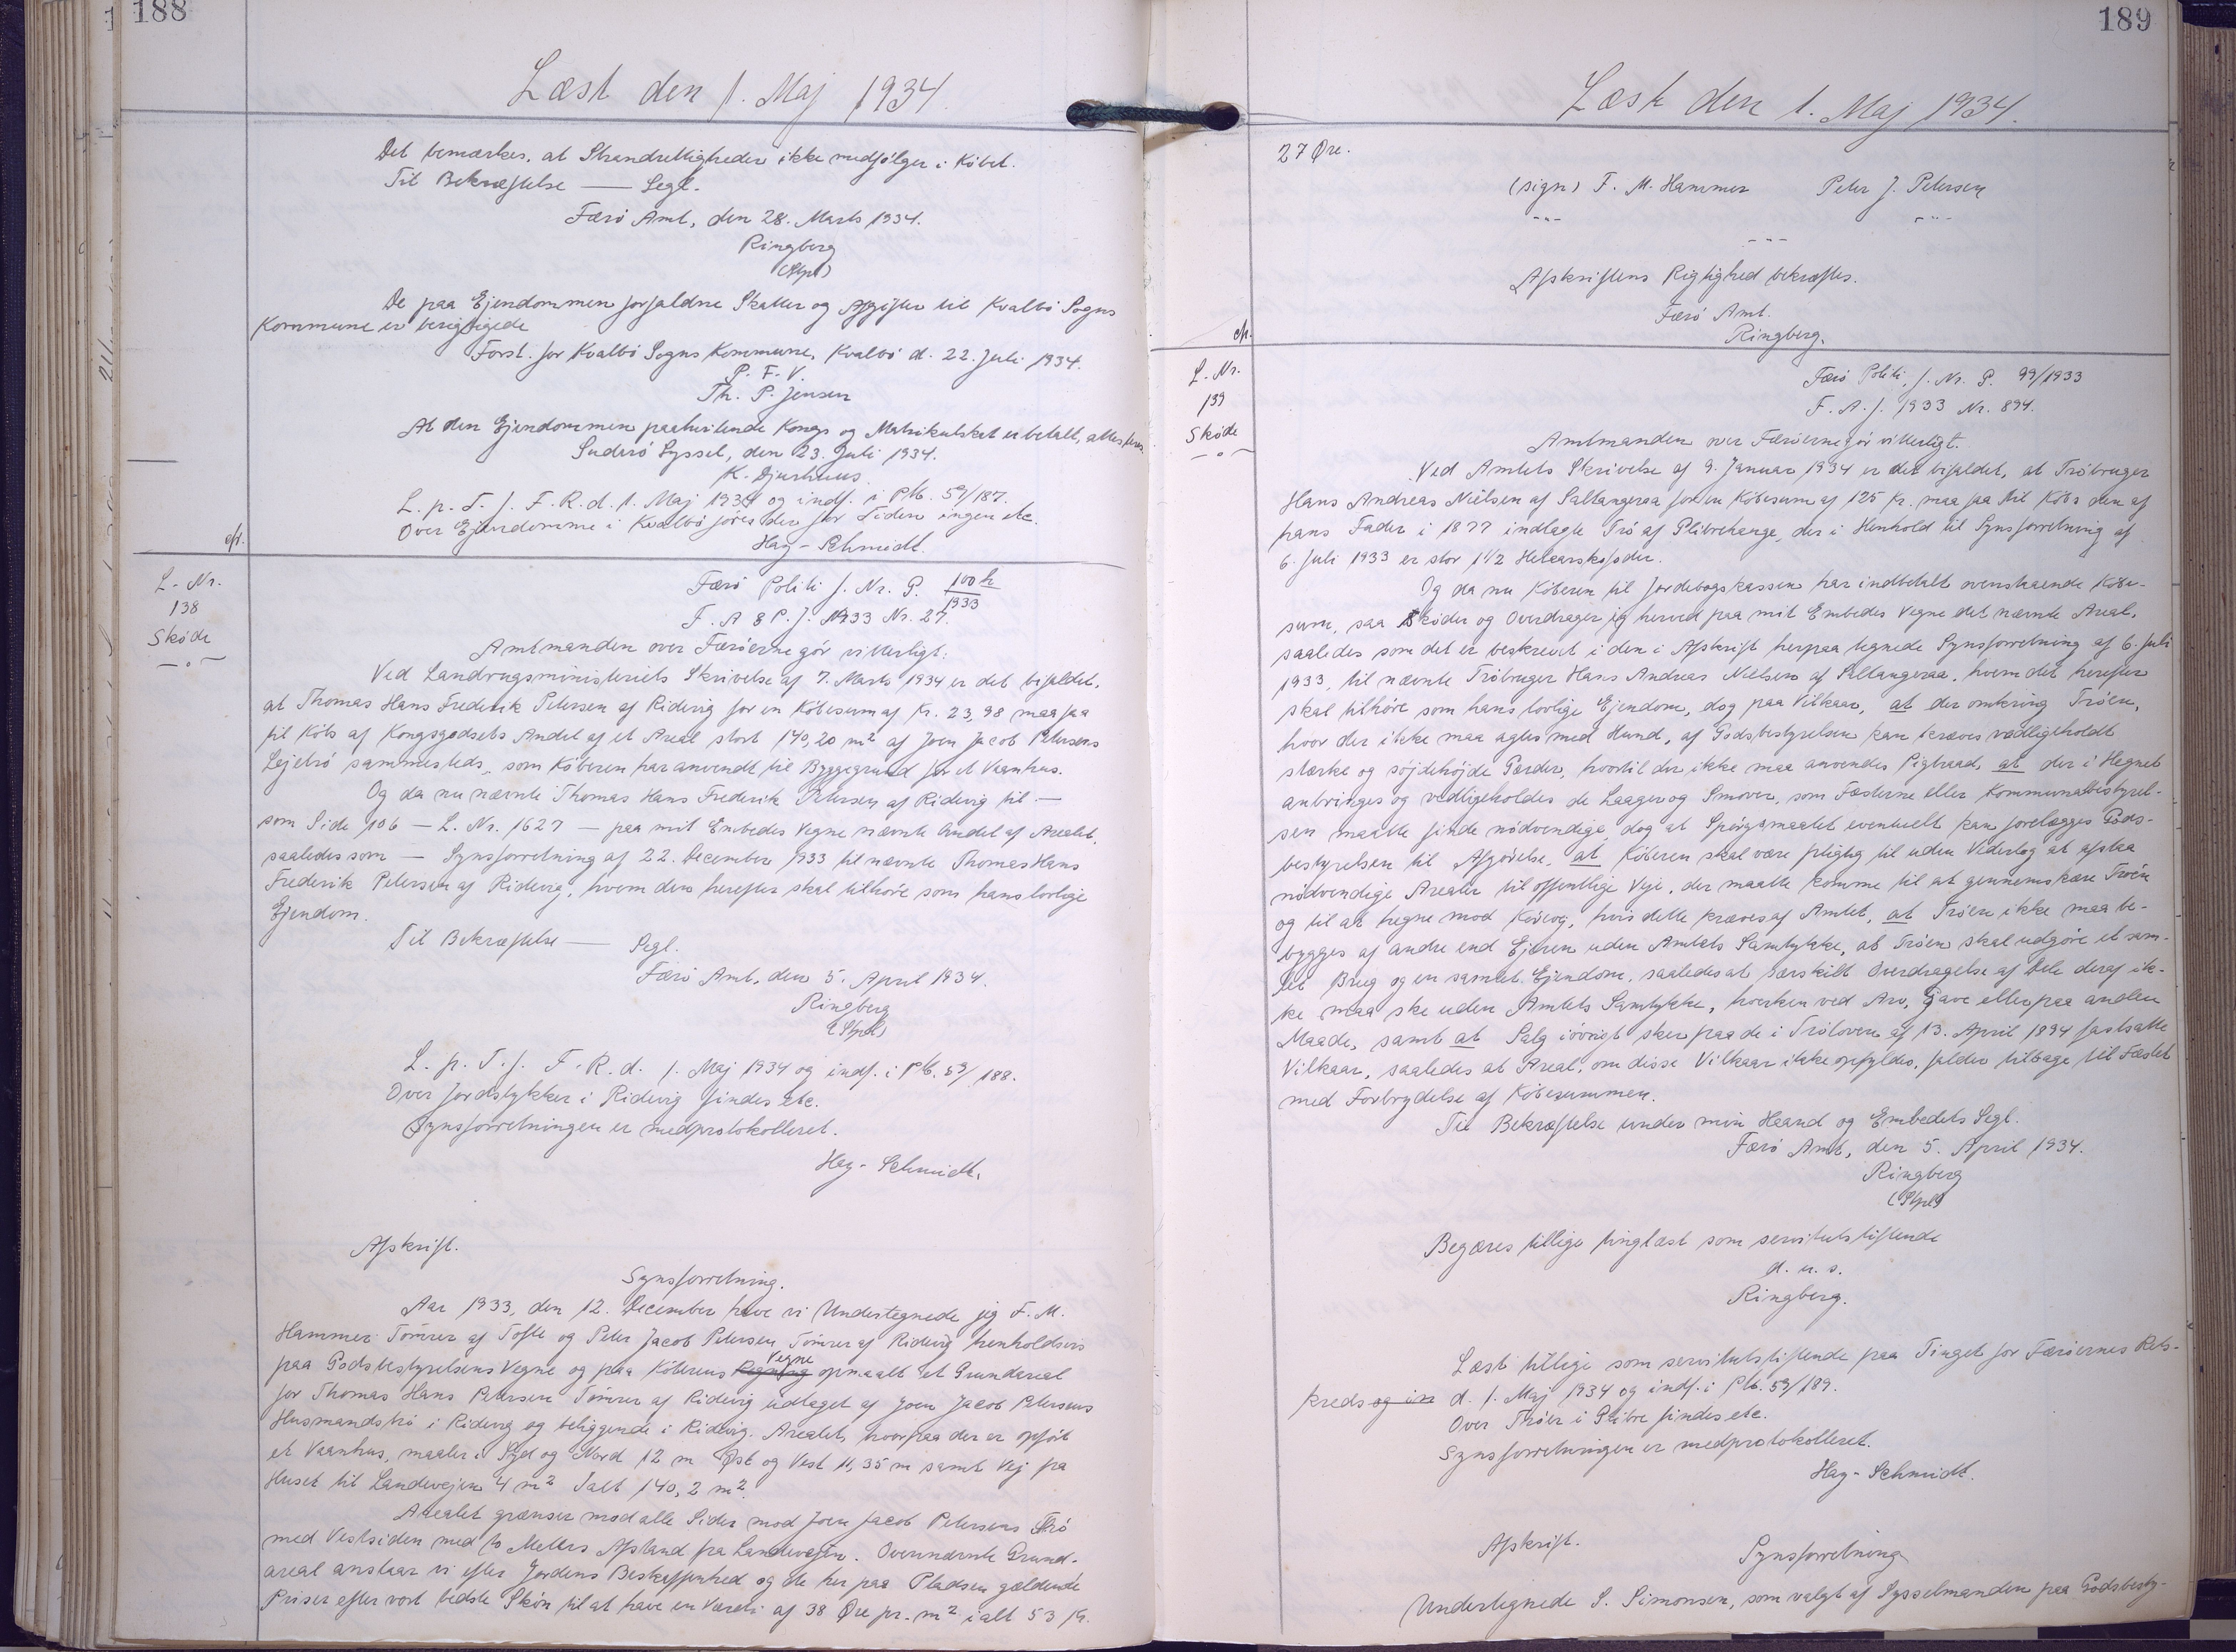 188
Læst den 1. Maj 1934.
Det bemærkes, at Strandrettigheder ikke medfølger i Købet.
Til Bekræftelse — Segl.
Færø Amt, den 28. Marts 1934.
Ringberg
(Stpl)
De paa Ejendommen forfaldne Skatter og Afgifter til Kvalbø Sogns
Kommune er berigtigede
Forst. for Kvalbø Sogns Kommune, Kvalbø d. 22. Juli 1934.
P. F. V.
Th. P. Jensen
At den Ejendommen paahvilende Kongs og Matrikulskat er betalt, attesteres.
Suderø Syssel, den 23. Juli 1934.
K. Djurhuus.
L. p. T. f. F. R. d. 1. Maj 1934 og indf. i Ptk. 59/187.
Over Ejendomme i Kvalbø føres der for Tiden ingen etc.
Hay-Schmidt.
cft.
L. Nr.
138
Skøde
Færø Politi J. Nr. P. 100 h/1933
F. A & P. J. 1933 Nr. 27.
Amtmanden over Færøerne gör vitterligt:
Ved Landbrugsministeriets Skrivelse af 7. Marts 1934 er det bifaldet,
at Thomas Hans Frederik Petersen af Ridevig for en Købesum af Kr. 23,98 maa faa
til Købs af Kongsgodsets Andel af et Areal stort 140,20 m² af Joen Jacob Petersens
Lejetrö sammesteds, som Køberen har anvendt til Byggegrund for et Vaanhus.
Og da nu nævnte Thomas Hans Frederik Petersen af Ridevig til —
som Side 106 — L. Nr. 1627 — paa mit Embedes Vegne nævnte Andel af Arealet,
saaledes som — Synsforretning af 22. December 1933 til nævnte Thomas Hans
Frederik Petersen af Ridevig, hvem den herefter skal tilhøre som hans lovlige
Ejendom.
Til Bekræftelse — Segl.
Færø Amt, den 5. April 1934.
Ringberg
(Stpl)
L. p. T. f. F. R. d. 1. Maj 1934 og indf. i Ptk. 59/188.
Over Jordstykker i Ridevig findes etc.
Synsforretningen er medprotokolleret.
Hay-Schmidt.
Afskrift.
Synsforretning.
Aar 1933, den 12. December have vi Undertegnede jeg F. M.
Hammer Tömrer af Tofte og Peter Jacob Petersen Tömrer af Ridevig henholdsvis
paa Godsbestyrelsens Vegne og paa Köberens Vegne opmaalt et Grundareal
for Thomas Hans Petersen Tömrer af Ridevig udtaget af Joen Jacob Petersens
Husmandströ i Ridevig og beliggende i Ridevig. Arealet, hvorpaa der er opført
et Vaanhus, maaler i Syd og Nord 12 m Øst og Vest 11,35 m samt Vej fra
Huset til Landevejen 4 m² Ialt 140,2 m².
Arealet grænser mod alle Sider mod Joen Jacob Petersens Trö
med Vestsiden med to Meters Afstand fra Landevejen. Ovennævnte Grund-
areal anslaar vi efter Jordens Beskaffenhed og de her paa Pladsen gældende
Priser efter vort bedste Skön til at have en Værdi af 38 Øre pr. m² ialt 53 Kr.
189
Læst den 1. Maj 1934.
27 Øre.
(sign) F. M. Hammer Peter J. Petersen
Afskriftens Rigtighed bekræftes.
Færø Amt.
Ringberg.
cft.
L. Nr.
139
Skøde
Færö Politi, J. Nr. P. 99/1933
F. A. J. 1933 Nr. 894.
Amtmanden over Færöerne gör vitterligt.
Ved Amtets Skrivelse af 9. Januar 1934 er det bifaldet, at Tröbruger
Hans Andreas Nielsen af Saltangeraa for en Købesum af 125 Kr. maa faa til Købs den af
hans Fader i 1877 indtagte Trö af Plibrehauge, der i Henhold til Synsforretning af
6. Juli 1933 er stor 1 1/2 Helaarskofoder.
Og da nu Köberen til Jordebogskassen har indbetalt ovenstaaende Købe-
sum, saa Skøder og Overdrager jeg herved paa mit Embedes Vegne det nævnte Areal,
saaledes som det er beskrevet i den i Afskrift herpaa tegnede Synsforretning af 6. Juli
1933, til nævnte Tröbruger Hans Andreas Nielsen af Saltangeraa, hvem det herefter
skal tilhöre som hans lovlige Ejendom, dog paa Vilkaar, at der omkring Tröen,
hvor der ikke maa agtes med Hund, af Godsbestyrelsen kan kræves vedligeholdt
stærke og föjdehöjde Gærder, hvortil der ikke maa anvendes Pigtraad, at der i Hegnet
anbringes og vedligeholdes de Laager og Smover, som Fæsterne eller Kommunalbestyrel-
sen maatte finde nödvendige, dog at Spörgsmaalet eventuelt kan forelægges Gods-
bestyrelsen til Afgörelse, at Köberen skal være pligtig til uden Vederlag at afstaa
nödvendige Arealer til offentlige Veje, der maatte komme til at gennemskære Tröen
og til at hegne mod Kövog, hvis dette kræves af Amtet, at Tröen ikke maa be-
bygges af andre end Ejeren uden Amtets Samtykke, at Tröen skal udgöre et sam-
let Brug og en samlet Ejendom, saaledes at særskilt Overdragelse af Dele deraf ik-
ke maa ske uden Amtets Samtykke, hverken ved Arv, Gave eller paa anden
Maade, samt at Salg iövrigt sker paa de i Trölovene af 13. April 1894 fastsatte
Vilkaar, saaledes at Areal, om disse Vilkaar ikke opfyldes, falder tilbage til Fæstet
med Forbrydelse af Købesummen.
Til Bekræftelse under min Haand og Embedets Segl.
Færö Amt, den 5. April 1934.
Ringberg
(Stpl)
Begæres tillige tinglæst som servitutstiftende
d. u. s.
Ringberg.
Læst tillige som servitutstiftende paa Tinget for Færöernes Rets-
kreds og in d. 1. Maj 1934 og indf. i Ptk. 59/189.
Over Tröer i Glibre findes etc.
Synsforretningen er medprotokolleret.
Hay-Schmidt.
Afskrift.
Synsforretning
Undertegnede S. Simonsen, som valgt af Sysselmanden paa Godsbesty-